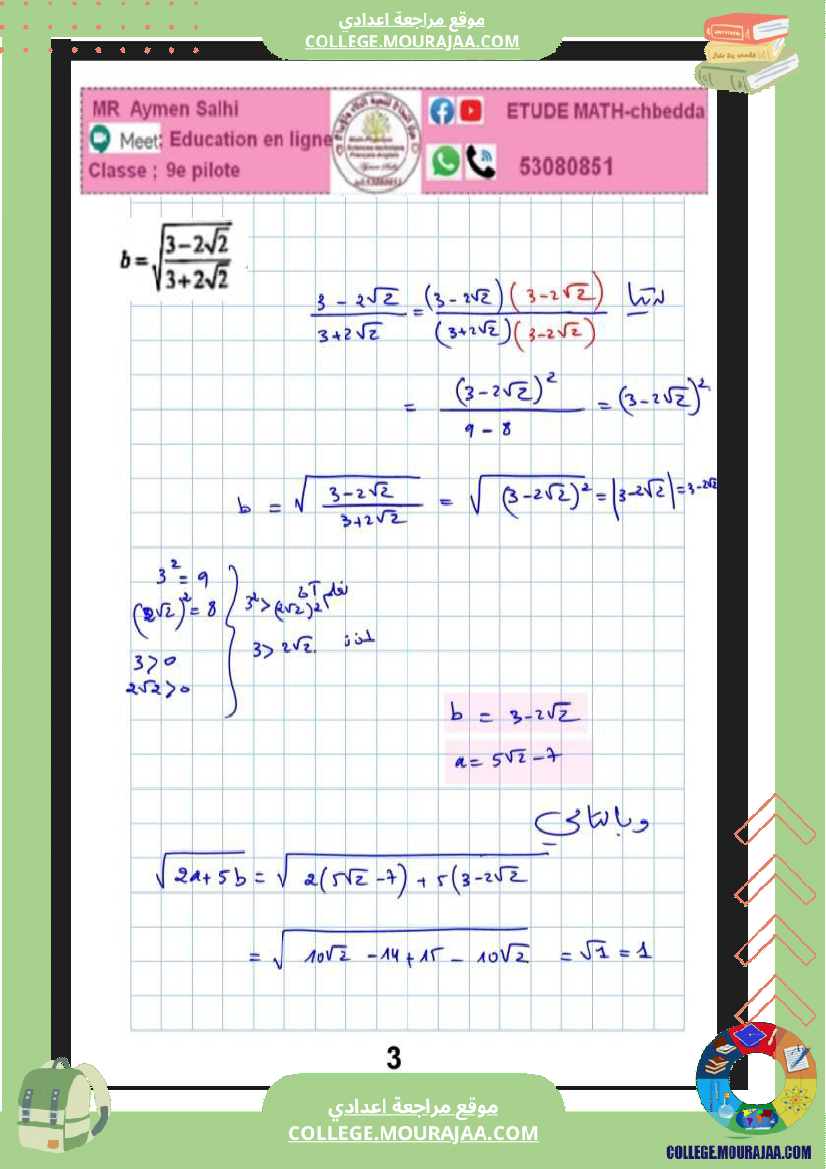 موقع مراجعة اعدادي
COLLEGE.MOURAJAA.COM
MR Aymen Salhi
Meet: Education en ligne
Classe ; 9e pilote
ETUDE MATH-chbedda
53080851
b = √((3-2√2)/(3+2√2))
(3-2√2)/(3+2√2) = ((3-2√2)(3-2√2))/((3+2√2)(3-2√2)) لدينا
= (3-2√2)²/(9-8) = (3-2√2)²
b = √((3-2√2)/(3+2√2)) = √((3-2√2)²) = |3-2√2| = 3-2√2
3² = 9
(2√2)² = 8
3>0
2√2>0
نعلم أن 3² > (2√2)²
إذن 3 > 2√2.
b = 3-2√2
a = 5√2-7
وبالتالي
√(2a+5b) = √(2(5√2-7)+5(3-2√2
= √(10√2-14+15-10√2) = √1 = 1
3
موقع مراجعة اعدادي
COLLEGE.MOURAJAA.COM
COLLEGE.MOURAJAA.COM